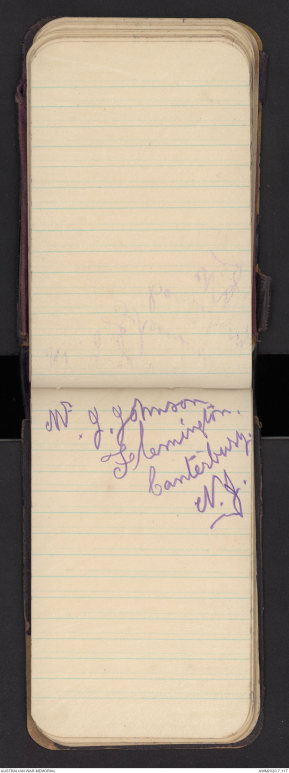 Mr. J. Johnson
Flemington.
Canterbury.
N.Z.
AUSTRALIAN WAR MEMORIAL